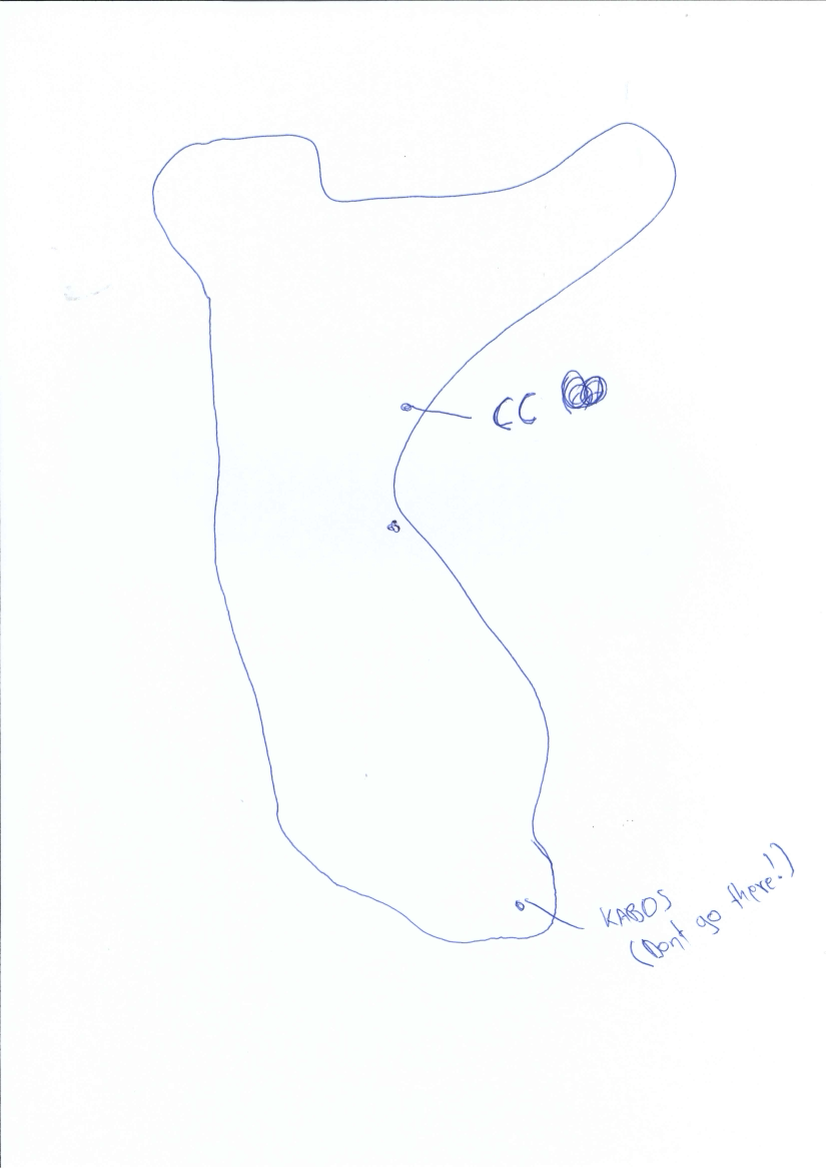 CC
KABOS
(Dont go there!)